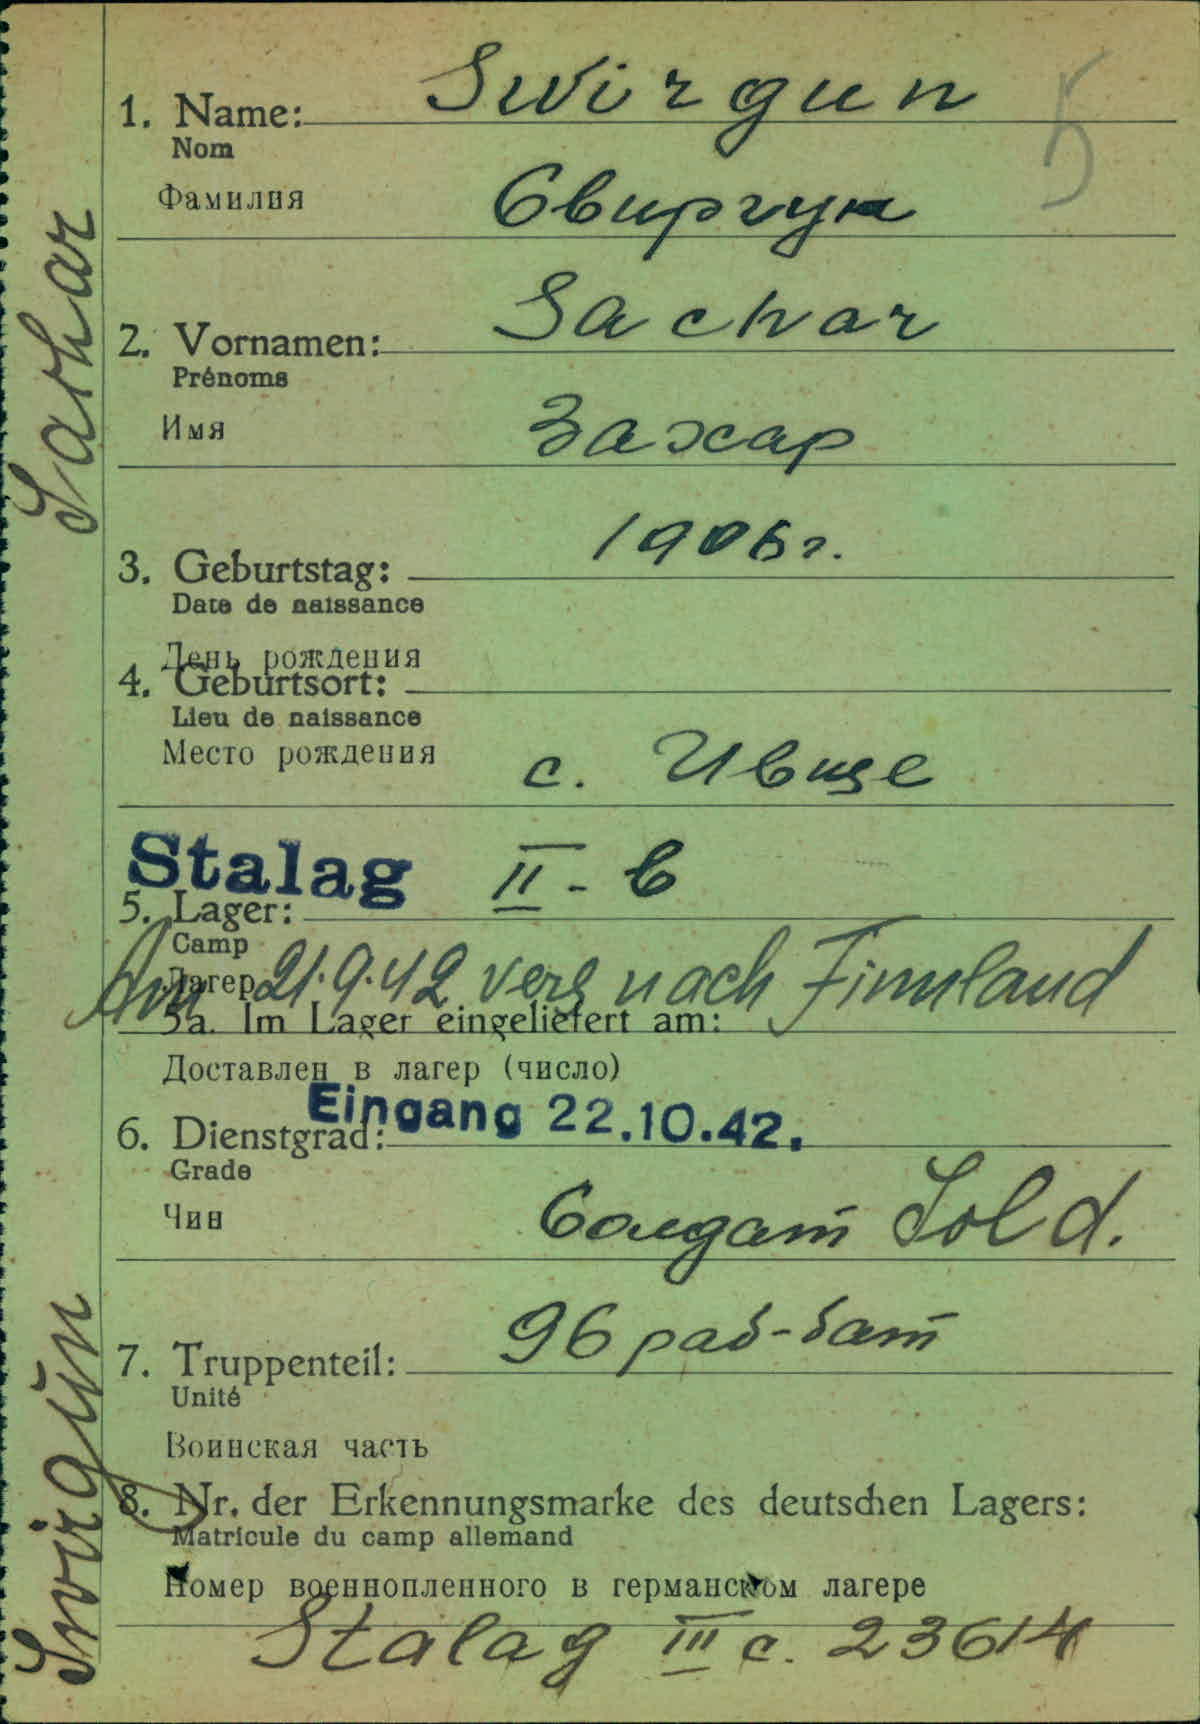 5
1. Name: Swirgun
Nom
Фамилия Свиргун
2. Vornamen: Sachar
Prénoms
Имя Захар
3. Geburtstag: 1906г.
Date de naissance
День рождения
4. Geburtsort:
Lieu de naissance
Место рождения с. Ивще
Stalag II-б
5. Lager:
Camp
Лагер
Am 21.9.42 vers nach Finnland
5a. Im Lager eingeliefert am:
Доставлен в лагер (число)
Eingang 22.10.42.
6. Dienstgrad:
Grade
Чин Солдат Sold.
7. Truppenteil: 96 раб-бат
Unité
Воинская часть
8. Nr. der Erkennungsmarke des deutschen Lagers:
Matricule du camp allemand
Номер военнопленного в германском лагере
Stalag III c. 23614
Swirgun Sachar